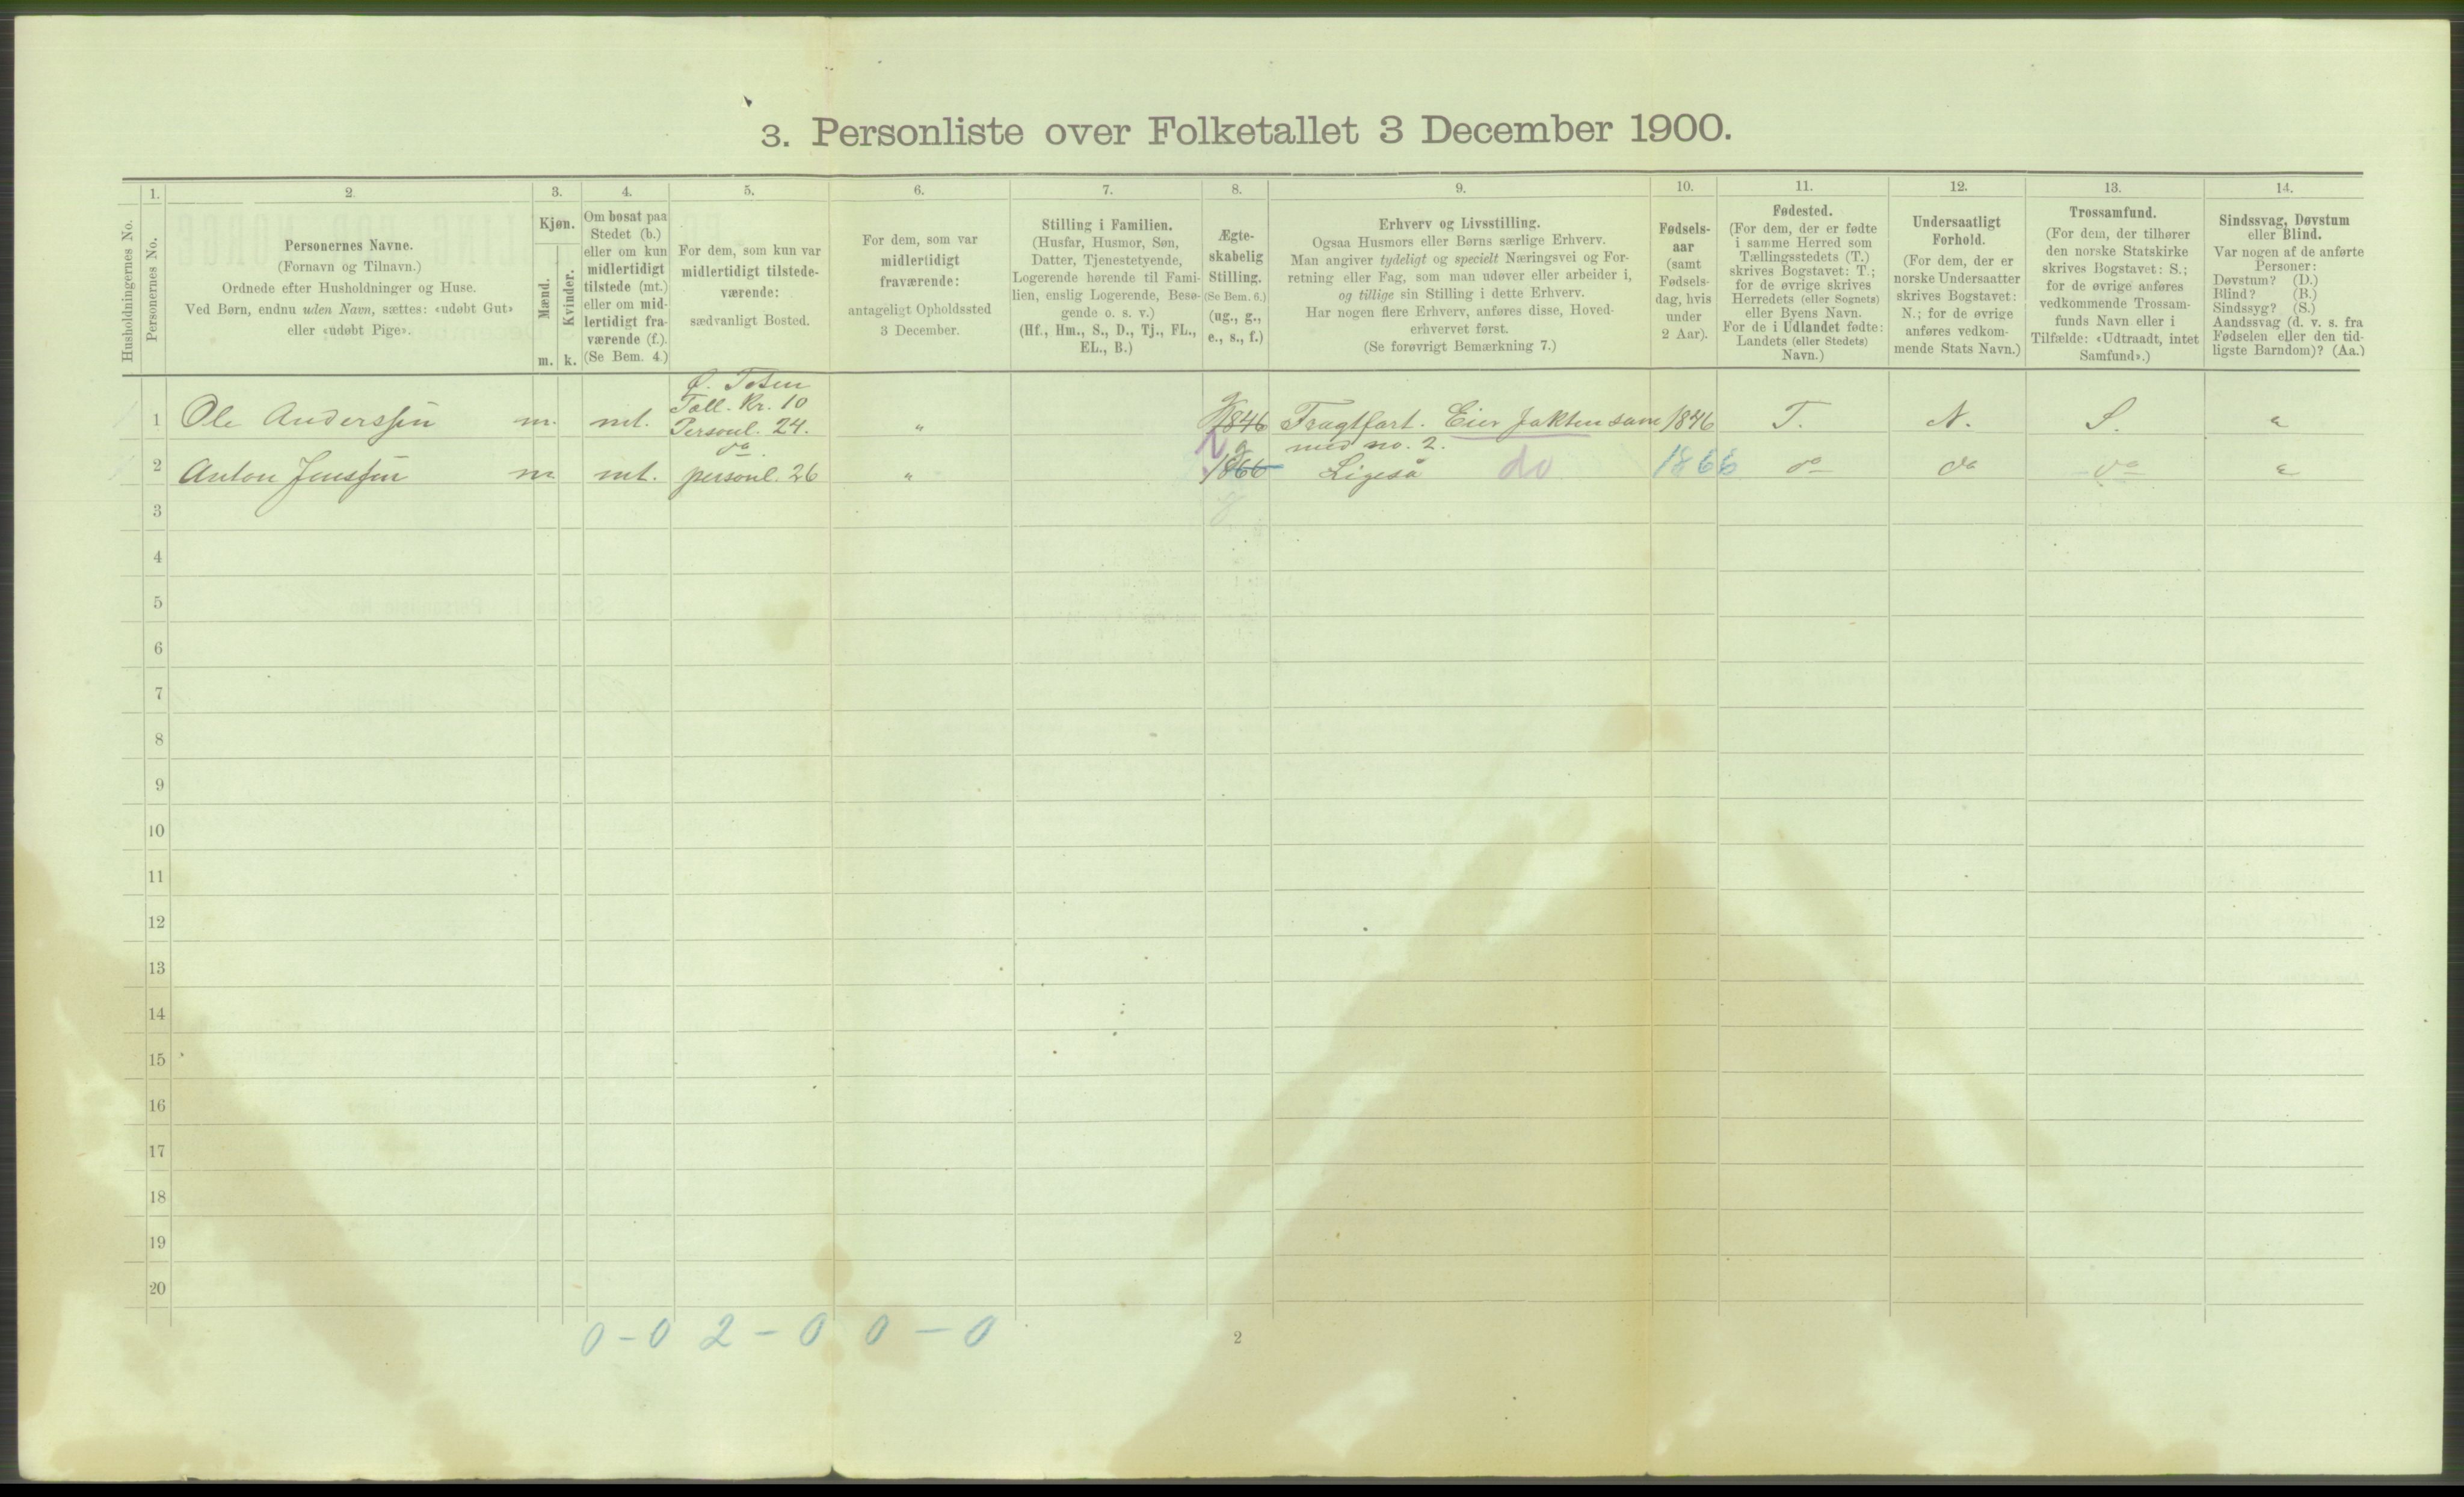 3. Personliste over Folketallet 3 December 1900.
Husholdningernes No.
1.
Personernes No.
2.
Personernes Navne.
(Fornavn og Tilnavn.)
Ordnede efter Husholdninger og Huse.
Ved Børn, endnu uden Navn, sættes: «udøbt Gut»
eller «udøbt Pige».
3.
Kjøn.
Mænd.
m.
Kvinder.
k.
4.
Om bosat paa
Stedet (b.)
eller om kun
midlertidigt
tilstede (mt.)
eller om mid-
lertidigt fra-
værende (f.).
(Se Bem. 4.)
5.
For dem, som kun var
midlertidigt tilstede-
værende:
sædvanligt Bosted.
6.
For dem, som var
midlertidigt
fraværende:
antageligt Opholdssted
3 December.
7.
Stilling i Familien.
(Husfar, Husmor, Søn,
Datter, Tjenestetyende,
Logerende hørende til Fami-
lien, enslig Logerende, Besø-
gende o. s. v.)
(Hf., Hm., S., D., Tj., FL.,
EL., B.)
8.
Ægte-
skabelig
Stilling.
(Se Bem. 6.)
(ug., g.,
e., s., f.)
9.
Erhverv og Livsstilling.
Ogsaa Husmors eller Børns særlige Erhverv.
Man angiver tydeligt og specielt Næringsvei og For-
retning eller Fag, som man udøver eller arbeider i,
og tillige sin Stilling i dette Erhverv.
Har nogen flere Erhverv, anføres disse, Hoved-
erhvervet først.
(Se forøvrigt Bemærkning 7.)
10.
Fødsels-
aar
(samt
Fødsels-
dag, hvis
under
2 Aar).
11.
Fødested.
(For dem, der er fødte
i samme Herred som
Tællingsstedets (T.)
skrives Bogstavet: T.;
for de øvrige skrives
Herredets (eller Sognets)
eller Byens Navn.
For de i Udlandet fødte:
Landets (eller Stedets)
Navn.)
12.
Undersaatligt
Forhold.
(For dem, der er
norske Undersaatter
skrives Bogstavet:
N.; for de øvrige
anføres vedkom-
mende Stats Navn.)
13.
Trossamfund.
(For dem, der tilhører
den norske Statskirke
skrives Bogstavet: S.;
for de øvrige anføres
vedkommende Trossam-
funds Navn eller i
Tilfælde: «Udtraadt, intet
Samfund».)
14.
Sindssvag, Døvstum
eller Blind.
Var nogen af de anførte
Personer:
Døvstum? (D.)
Blind? (B.)
Sindssyg? (S.)
Aandssvag (d. v. s. fra
Fødselen eller den tid-
ligste Barndom)? (Aa.)
1 Ole Anderssen m. mt. Tæll. Kr. 10 Personl. 24. " g 1846 Fragtfart. Eier Jakten sam 1846 T. N. S. "
med no. 2.
2 Anton Jenssen m mt. do personl. 26 " g 1866 Ligeså do 1866 do do do "
3
4
5
6
7
8
9
10
11
12
13
14
15
16
17
18
19
20
0-0 2-0 0-0
2